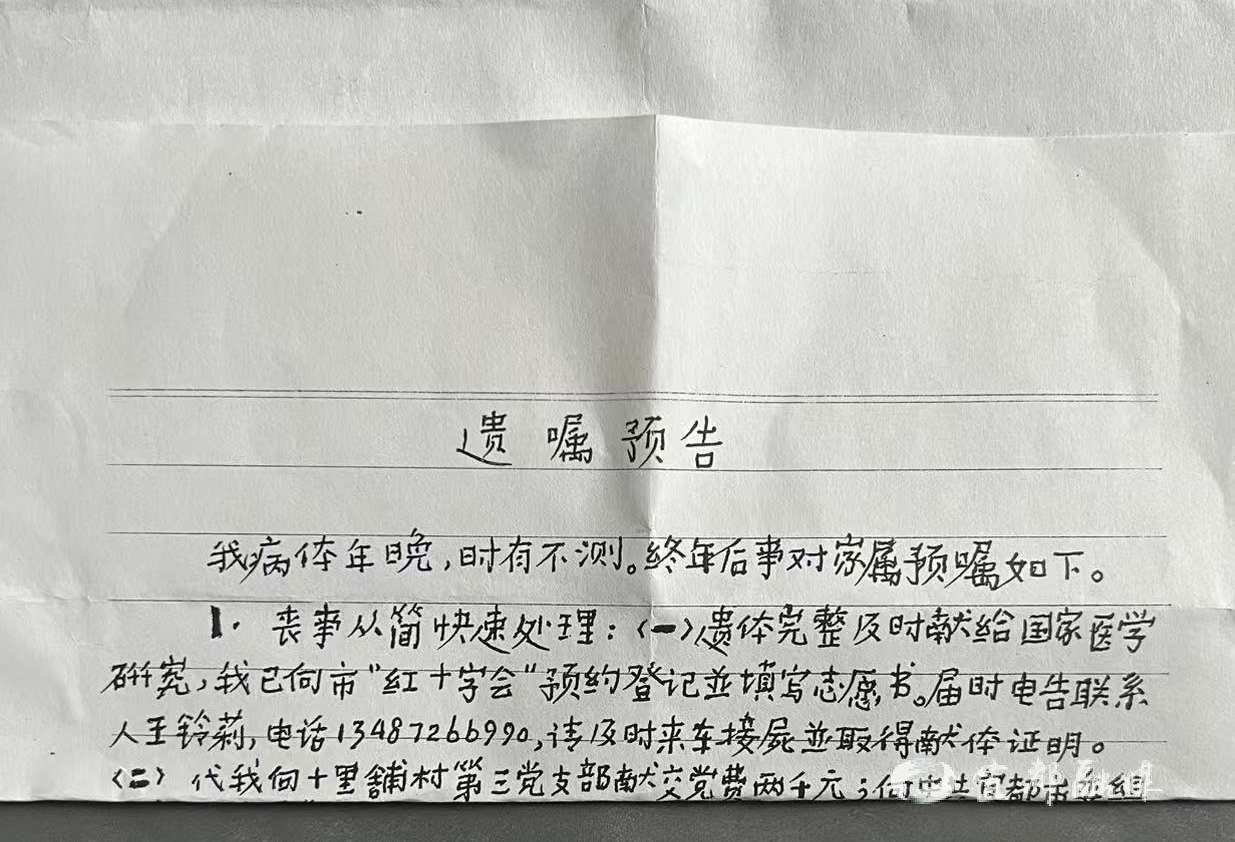 遗嘱预告
我病体年晚,时有不测。终年后事对家属预嘱如下。
1. 丧事从简快速处理:(一)遗体完整及时献给国家医学
研究,我已向市“红十字会”预约登记並填写志愿书。届时电告联系
人王铃莉,电话13487266990,请及时来车接屍並取得献体证明。
(二)代我向十里舖村第三党支部献交党费两千元;向中共宜都市委组
宜都融媒